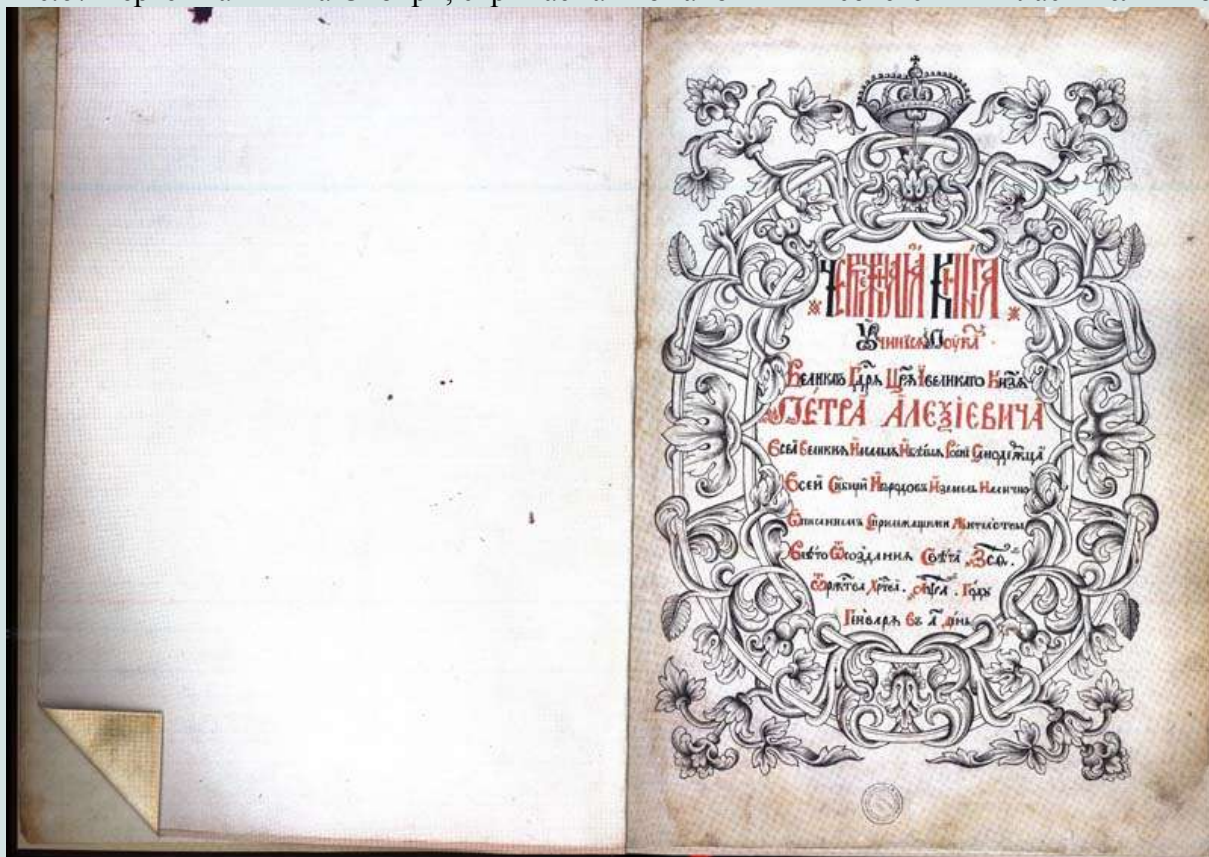 ЧЕРТЕЖНАѦ КНИГА
Учинися Поука
Великаго Гдря Цря Ивеликаго Кнзя
ПЕТРА АЛЕѮІЕВИЧА
Всеѧ Великия Ималыя Ибѣлыя Росиі Самодержца
Всей Сибири Игородовъ Иземель Налично
Описаниемъ Сприлежащими Жителствы
Влѣто Ѿсоздания Свѣта ҂ЗСѲ.
Ѿржтва Хртва. ҂АѰА. Году
Генваря Въ А день